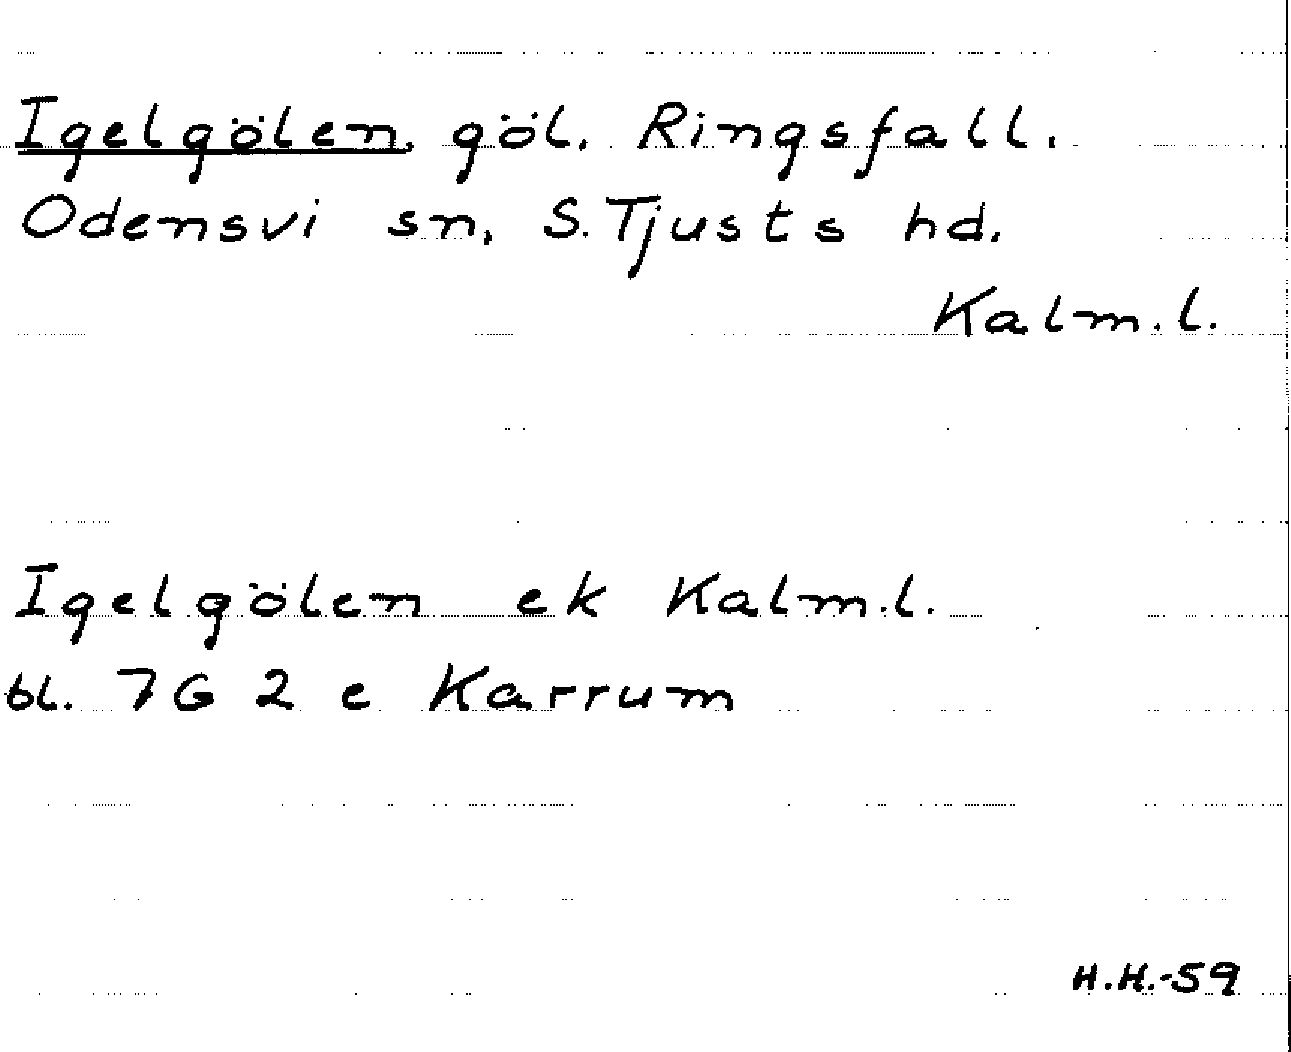 Igelgölen, göl. Ringsfall.
Odensvi sn, S. Tjusts hd.
Kalm.l.
Igelgölen ek Kalm.l.
bl. 7G 2 e Karrum
H.H.-59